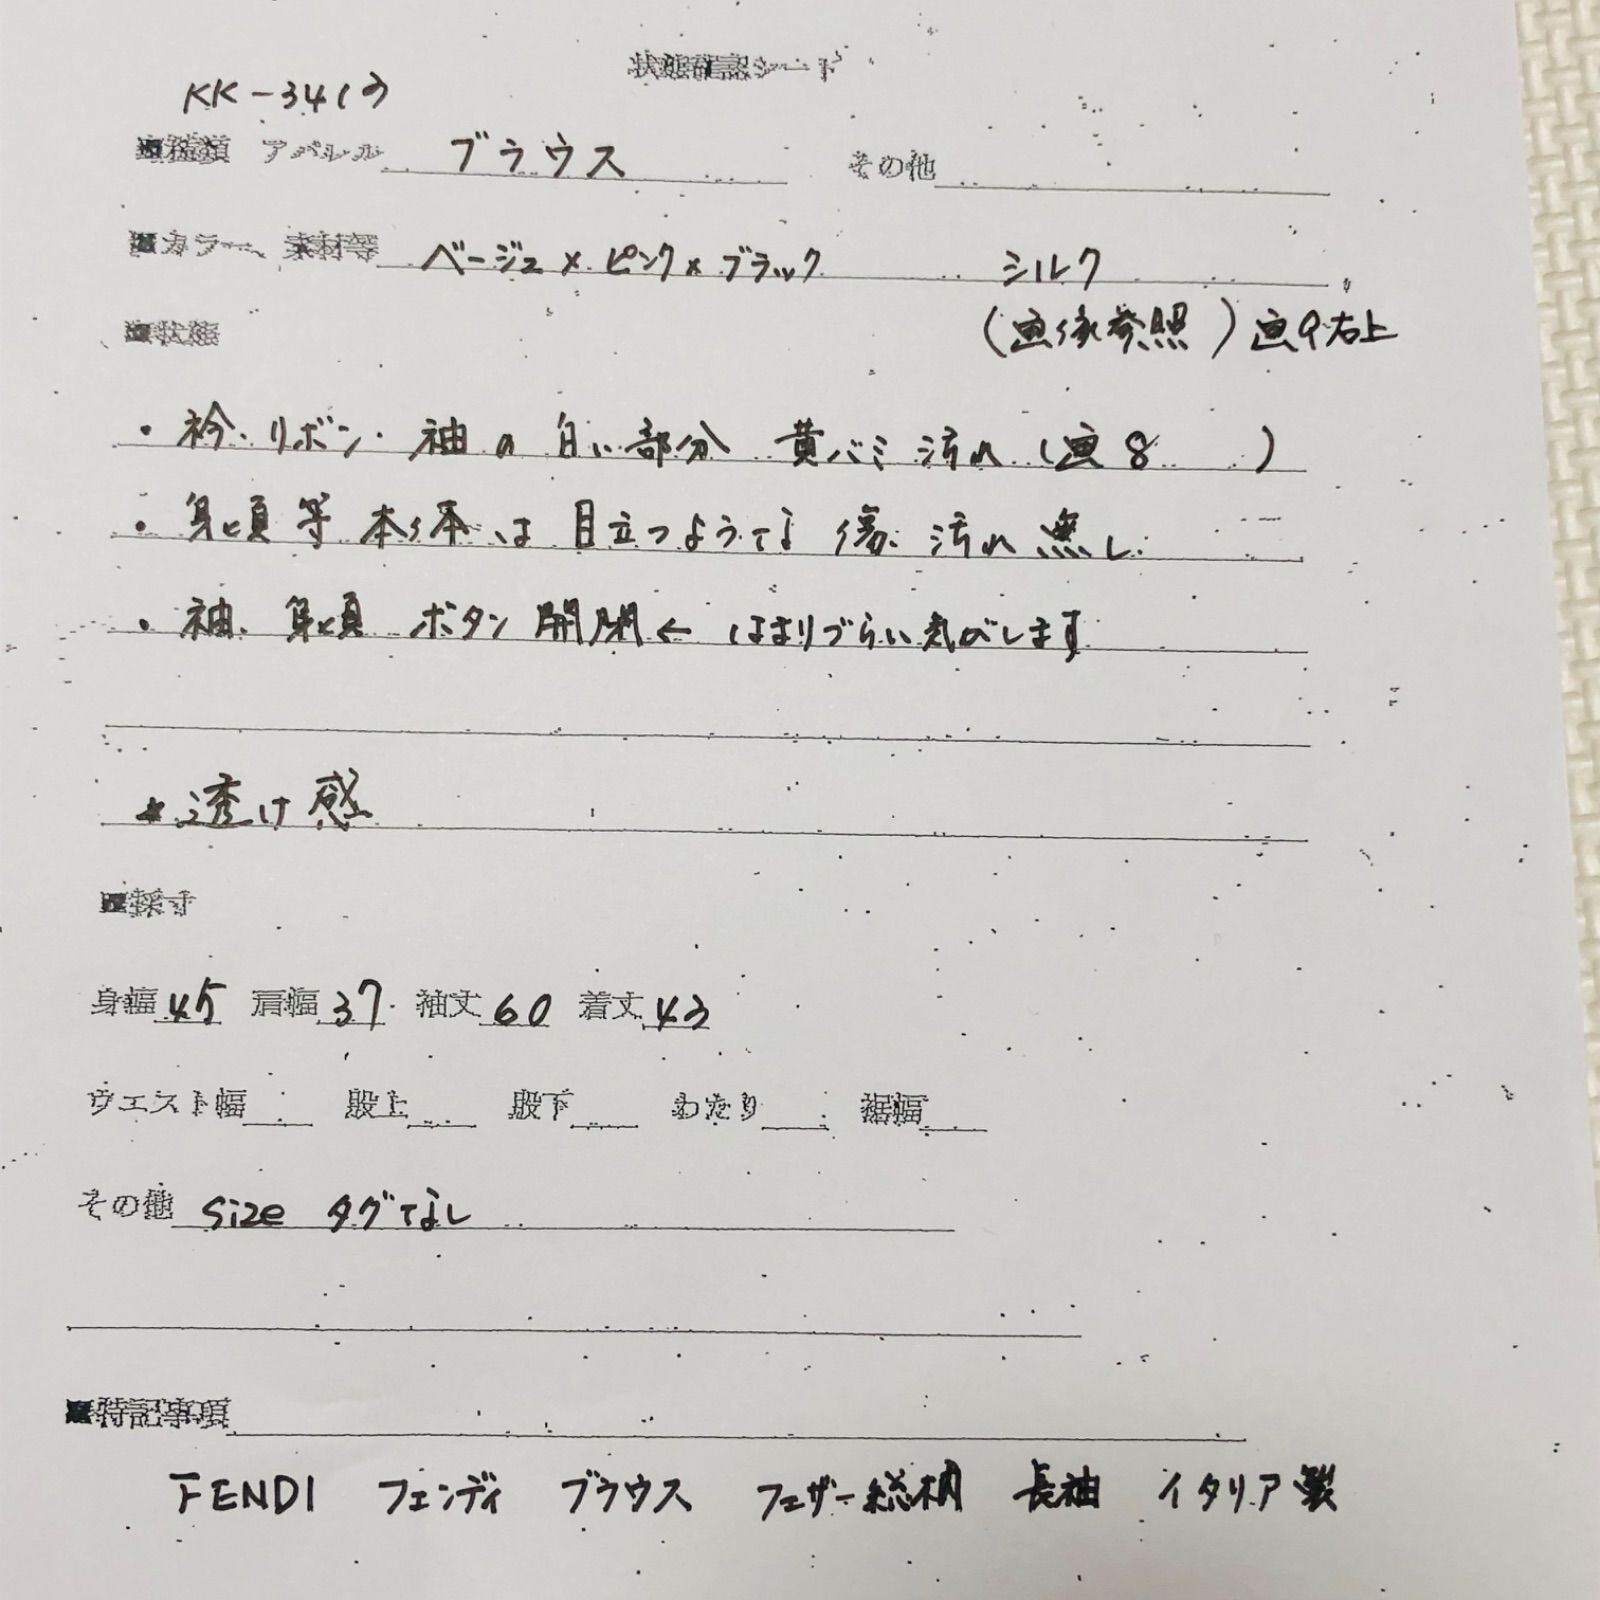 状態確認シート
KK-341
■種類 アパレル ブラウス その他
■カラー、素材等 ベージュ×ピンク×ブラック シルク
■状態 (画像参照) 画9右上
・衿・リボン・袖の白い部分 黄バミ汚れ(画8 )
・身頃等 本体は目立つような傷、汚れ無し
・袖、身頃 ボタン開閉← はまりづらい気がします
*透け感
■採寸
身幅45 肩幅37 袖丈60 着丈43
ウエスト幅 股上 股下 わたり 裾幅
その他 size タグなし
■特記事項
FENDI フェンディ ブラウス フェザー総柄 長袖 イタリア製